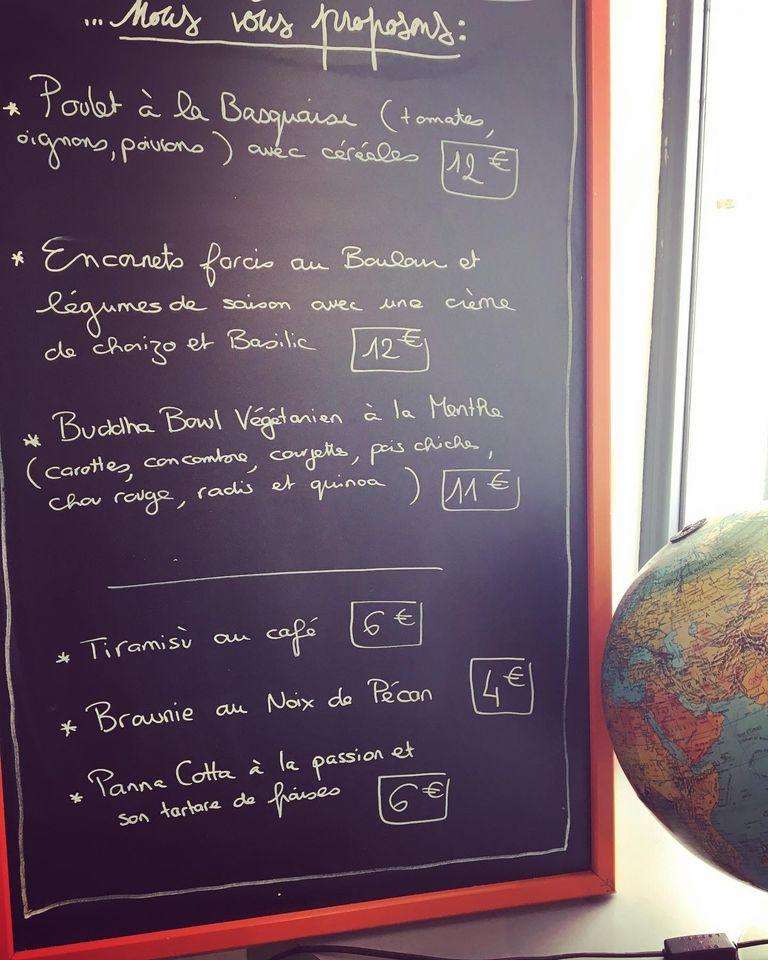 ... Nous vous proposons:
* Poulet à la Basquaise (tomates,
oignons, poivrons) avec céréales 12€
* Encornets farcis au Boulgur et
légumes de saison avec une crème
de chorizo et Basilic 12€
* Buddha Bowl Végétarien à la Menthe
(carottes, concombre, courgette, pois chiche,
chou rouge, radis et quinoa) 11€
* Tiramisù au café 6€
* Brownie au Noix de Pécan 4€
* Panna Cotta à la passion et
son tartare de fraises 6€